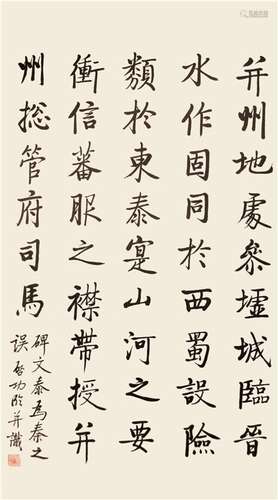 并州地處參墟城臨晉
水作固同於西蜀設險
類於東泰寔山河之要
衝信蕃服之襟帶授并
州捴管府司馬
碑文泰為秦之
误 启功临并識